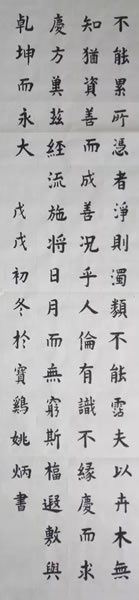 不能累所憑者淨則濁類不能霑夫以卉木無
知猶資善而成善況乎人倫有識不緣慶而求
慶方冀茲經流施将日月而無窮斯福遐敷與
乹坤而永大　戊戌初冬於寶鷄姚炳書